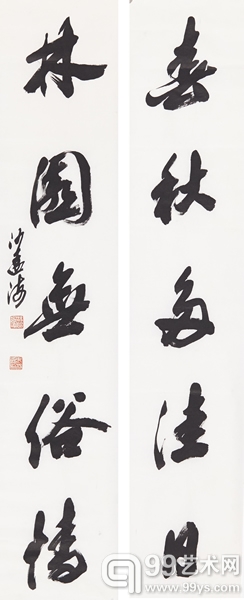 春秋多佳日
林園無俗情
沙孟海
99艺术网
www.99ys.com